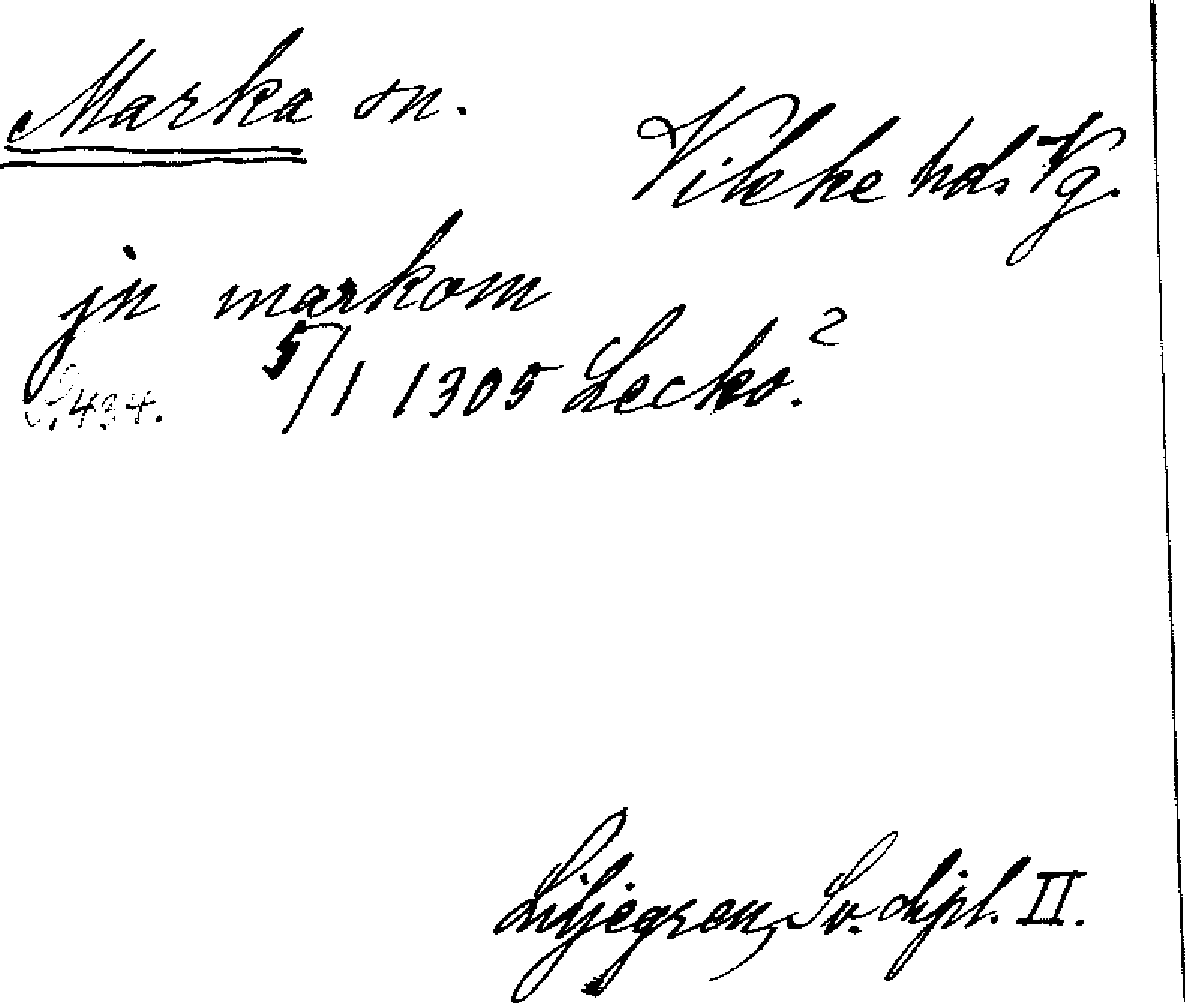 Marka sn.
Vilske hd. Vg.
jn markom
5/1 1305 Lecko.2
S. 434.
Liljegren, Sv. dipl. II.